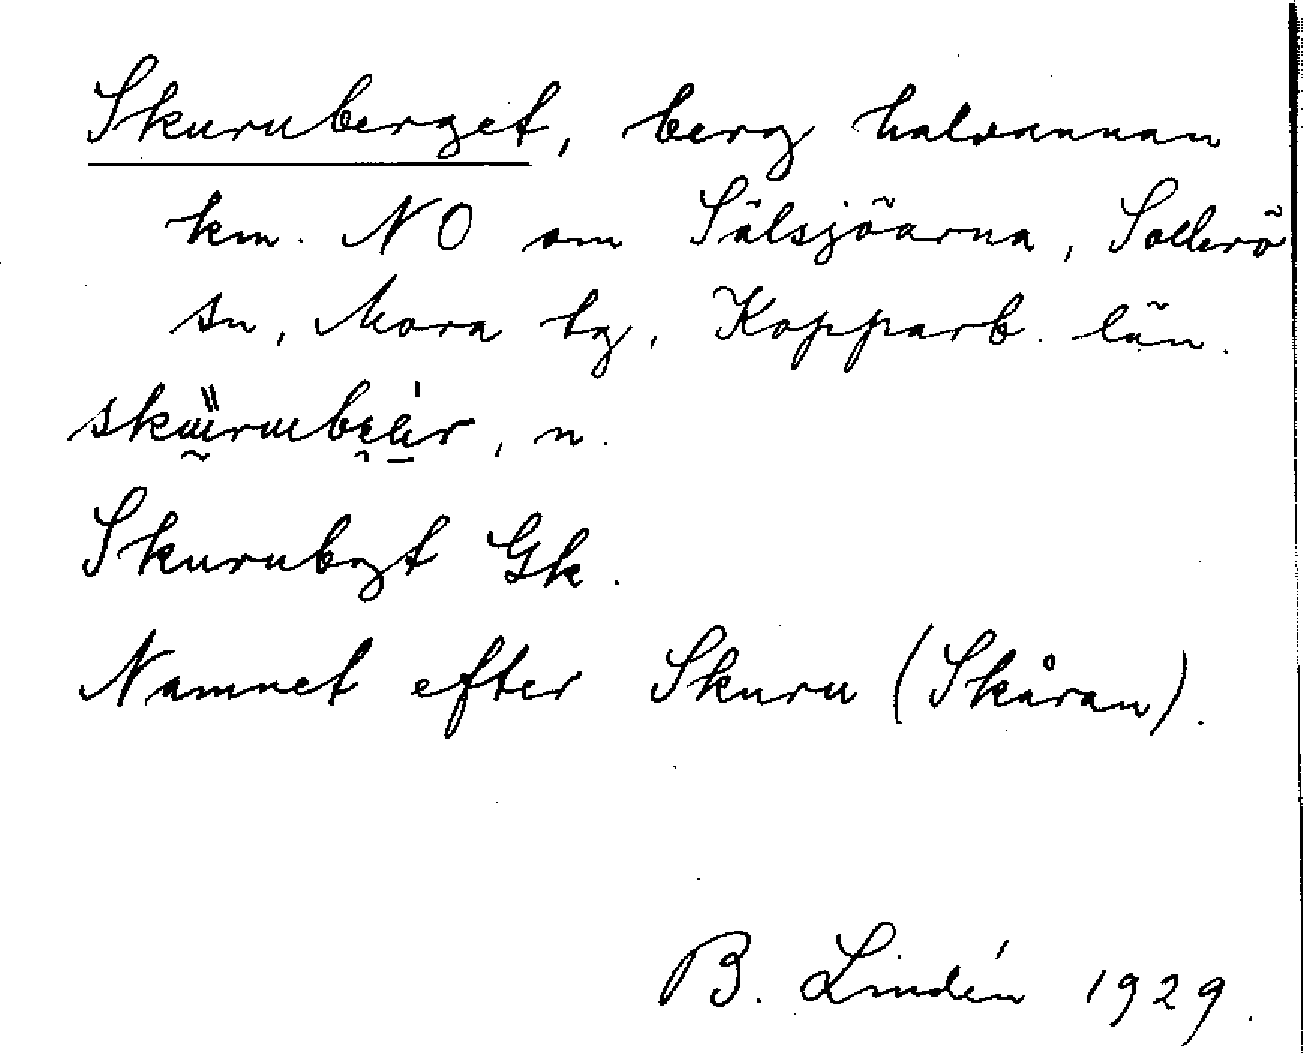 Skuruberget, berg halvannan
km. NO om Sälsjöarna, Sollerö
sn, Mora tg, Kopparb. län.
n.
Skurubgt Gk.
Namnet efter Skuru (Skåran).
B. Lindén 1929.